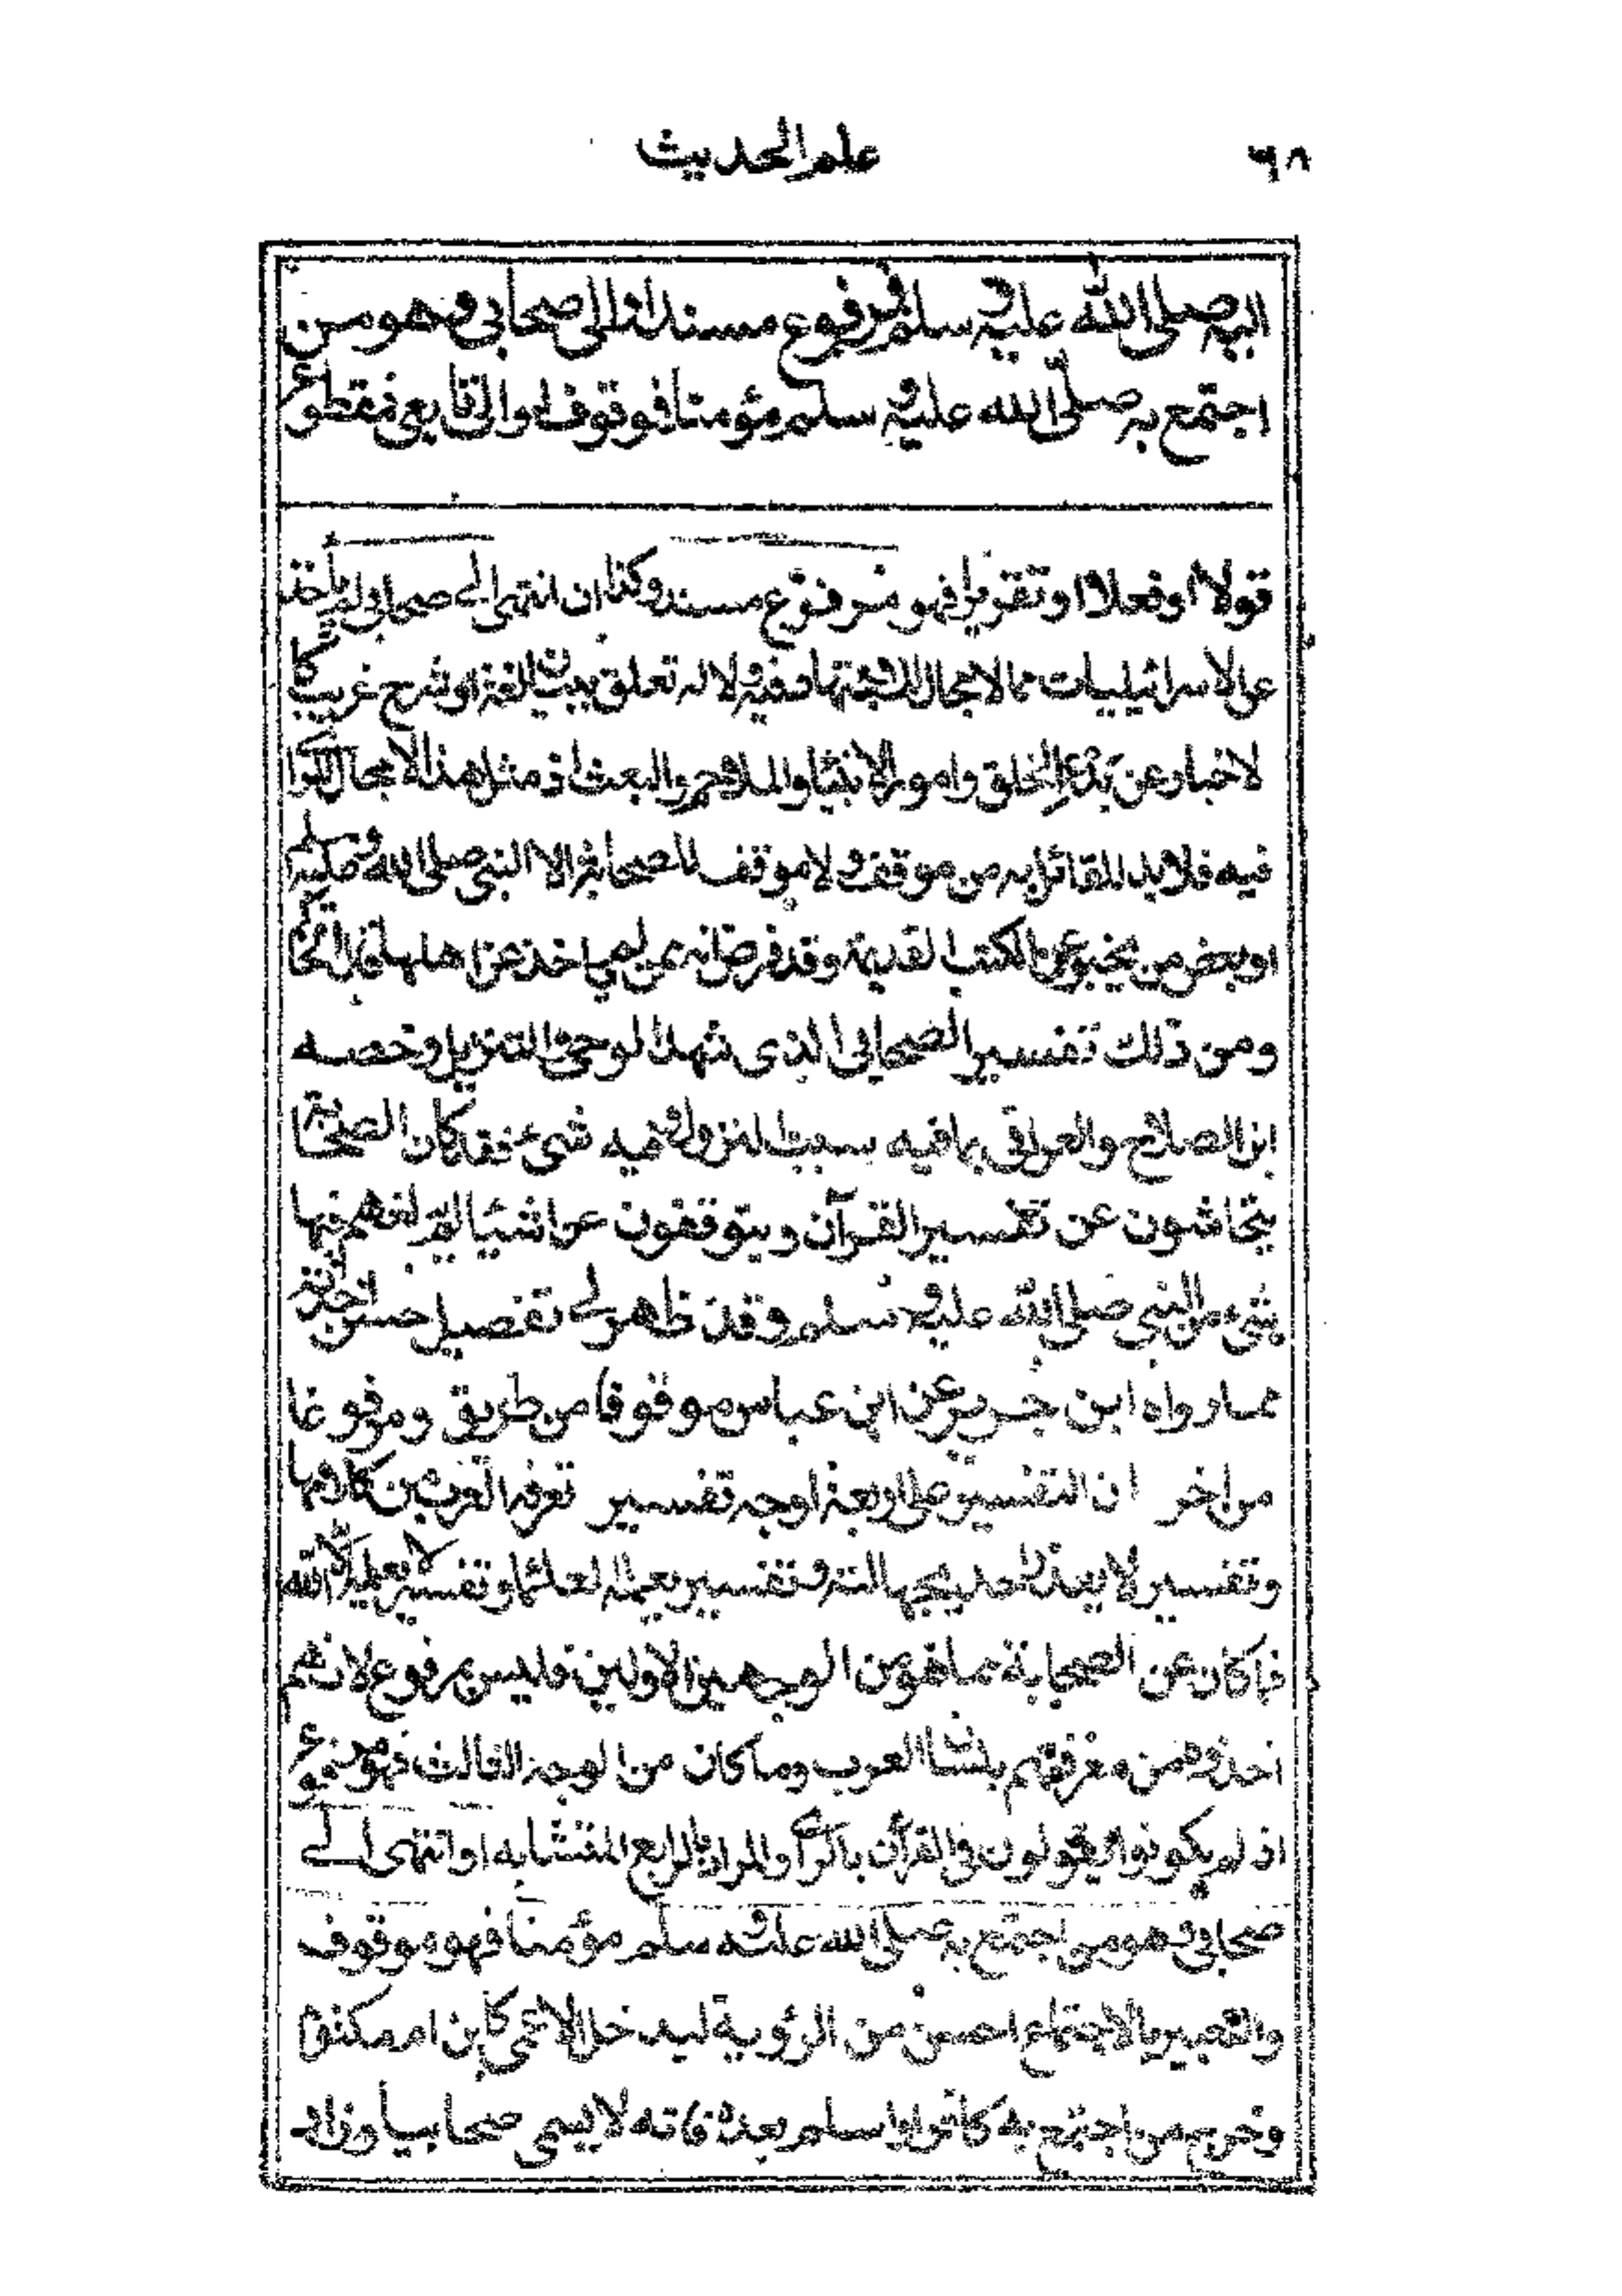 ٦٨
علم الحديث
اليه صلى الله عليه وسلم فمرفوع مسند او الى صحابي وهو من
اجتمع به صلى الله عليه وسلم مؤمنا فموقوف او الى تابعي فمقطوع
قولا او فعلا او تقريرا فهو مرفوع مسند وكذا ان انتهى الى صحابي لم ياخذ
عن الاسرائيليات مما لا مجال للاجتهاد فيه ولا له تعلق ببيان لغة او شرح غريب كا
لاخبار عن بدء الخلق وامور الانبياء والملاحم والبعث اذ مثل هذا لا مجال للرأي
فيه فلا بد للقائل به من موقف ولا موقف للصحابة الا النبي صلى الله عليه وسلم
او بعض من يخبر عن الكتب القديمة وقد فرض انه ممن لم ياخذ عن اهلها
ومن ذلك تفسير الصحابي الذي شهد الوحي والتنزيل وخصه
ابن الصلاح والعراقي بما فيه سبب النزول وفيه شيء فقد كان الصحابة
يتحاشون عن تفسير القرآن ويتوقفون عن اشياء لم يبلغهم فيها
شيء من النبي صلى الله عليه وسلم وقد ظهر لي تفصيل حسن اخذته
مما رواه ابن جرير عن ابن عباس موقوفا من طريق ومرفوعا
من اخر ان التفسير على اربعة اوجه تفسير تعرفه العرب من كلامها
وتفسير لا يعذر احد بجهالته وتفسير يعلمه العلماء وتفسير لا يعلمه الا الله
فما كان عن الصحابة مما هو من الوجهين الاولين فليس بمرفوع لانهم
اخذوه من معرفتهم بلسان العرب وما كان من الوجه الثالث فهو مرفوع
اذ لم يكونوا يقولون في القرآن بالرأي والمراد بالرابع المتشابه او انتهى الى
صحابي وهو من اجتمع به صلى الله عليه وسلم مؤمنا فهو موقوف
والتعبير بالاجتماع احسن من الرؤية ليدخل الاعمى كابن ام مكتوم
وخرج من اجتمع به كافرا واسلم بعد وفاته لا يسمى صحابيا وزاد